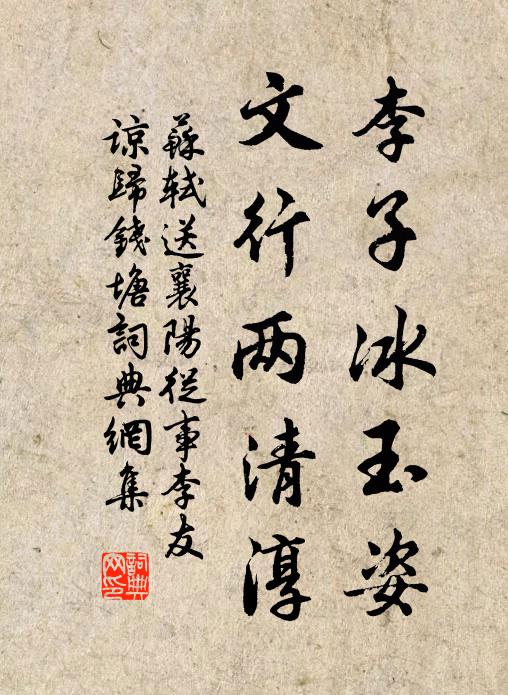 李子冰玉姿
文行两清淳
蘇軾送襄陽從事李友
諒歸錢塘詞典網集
詞典
网印